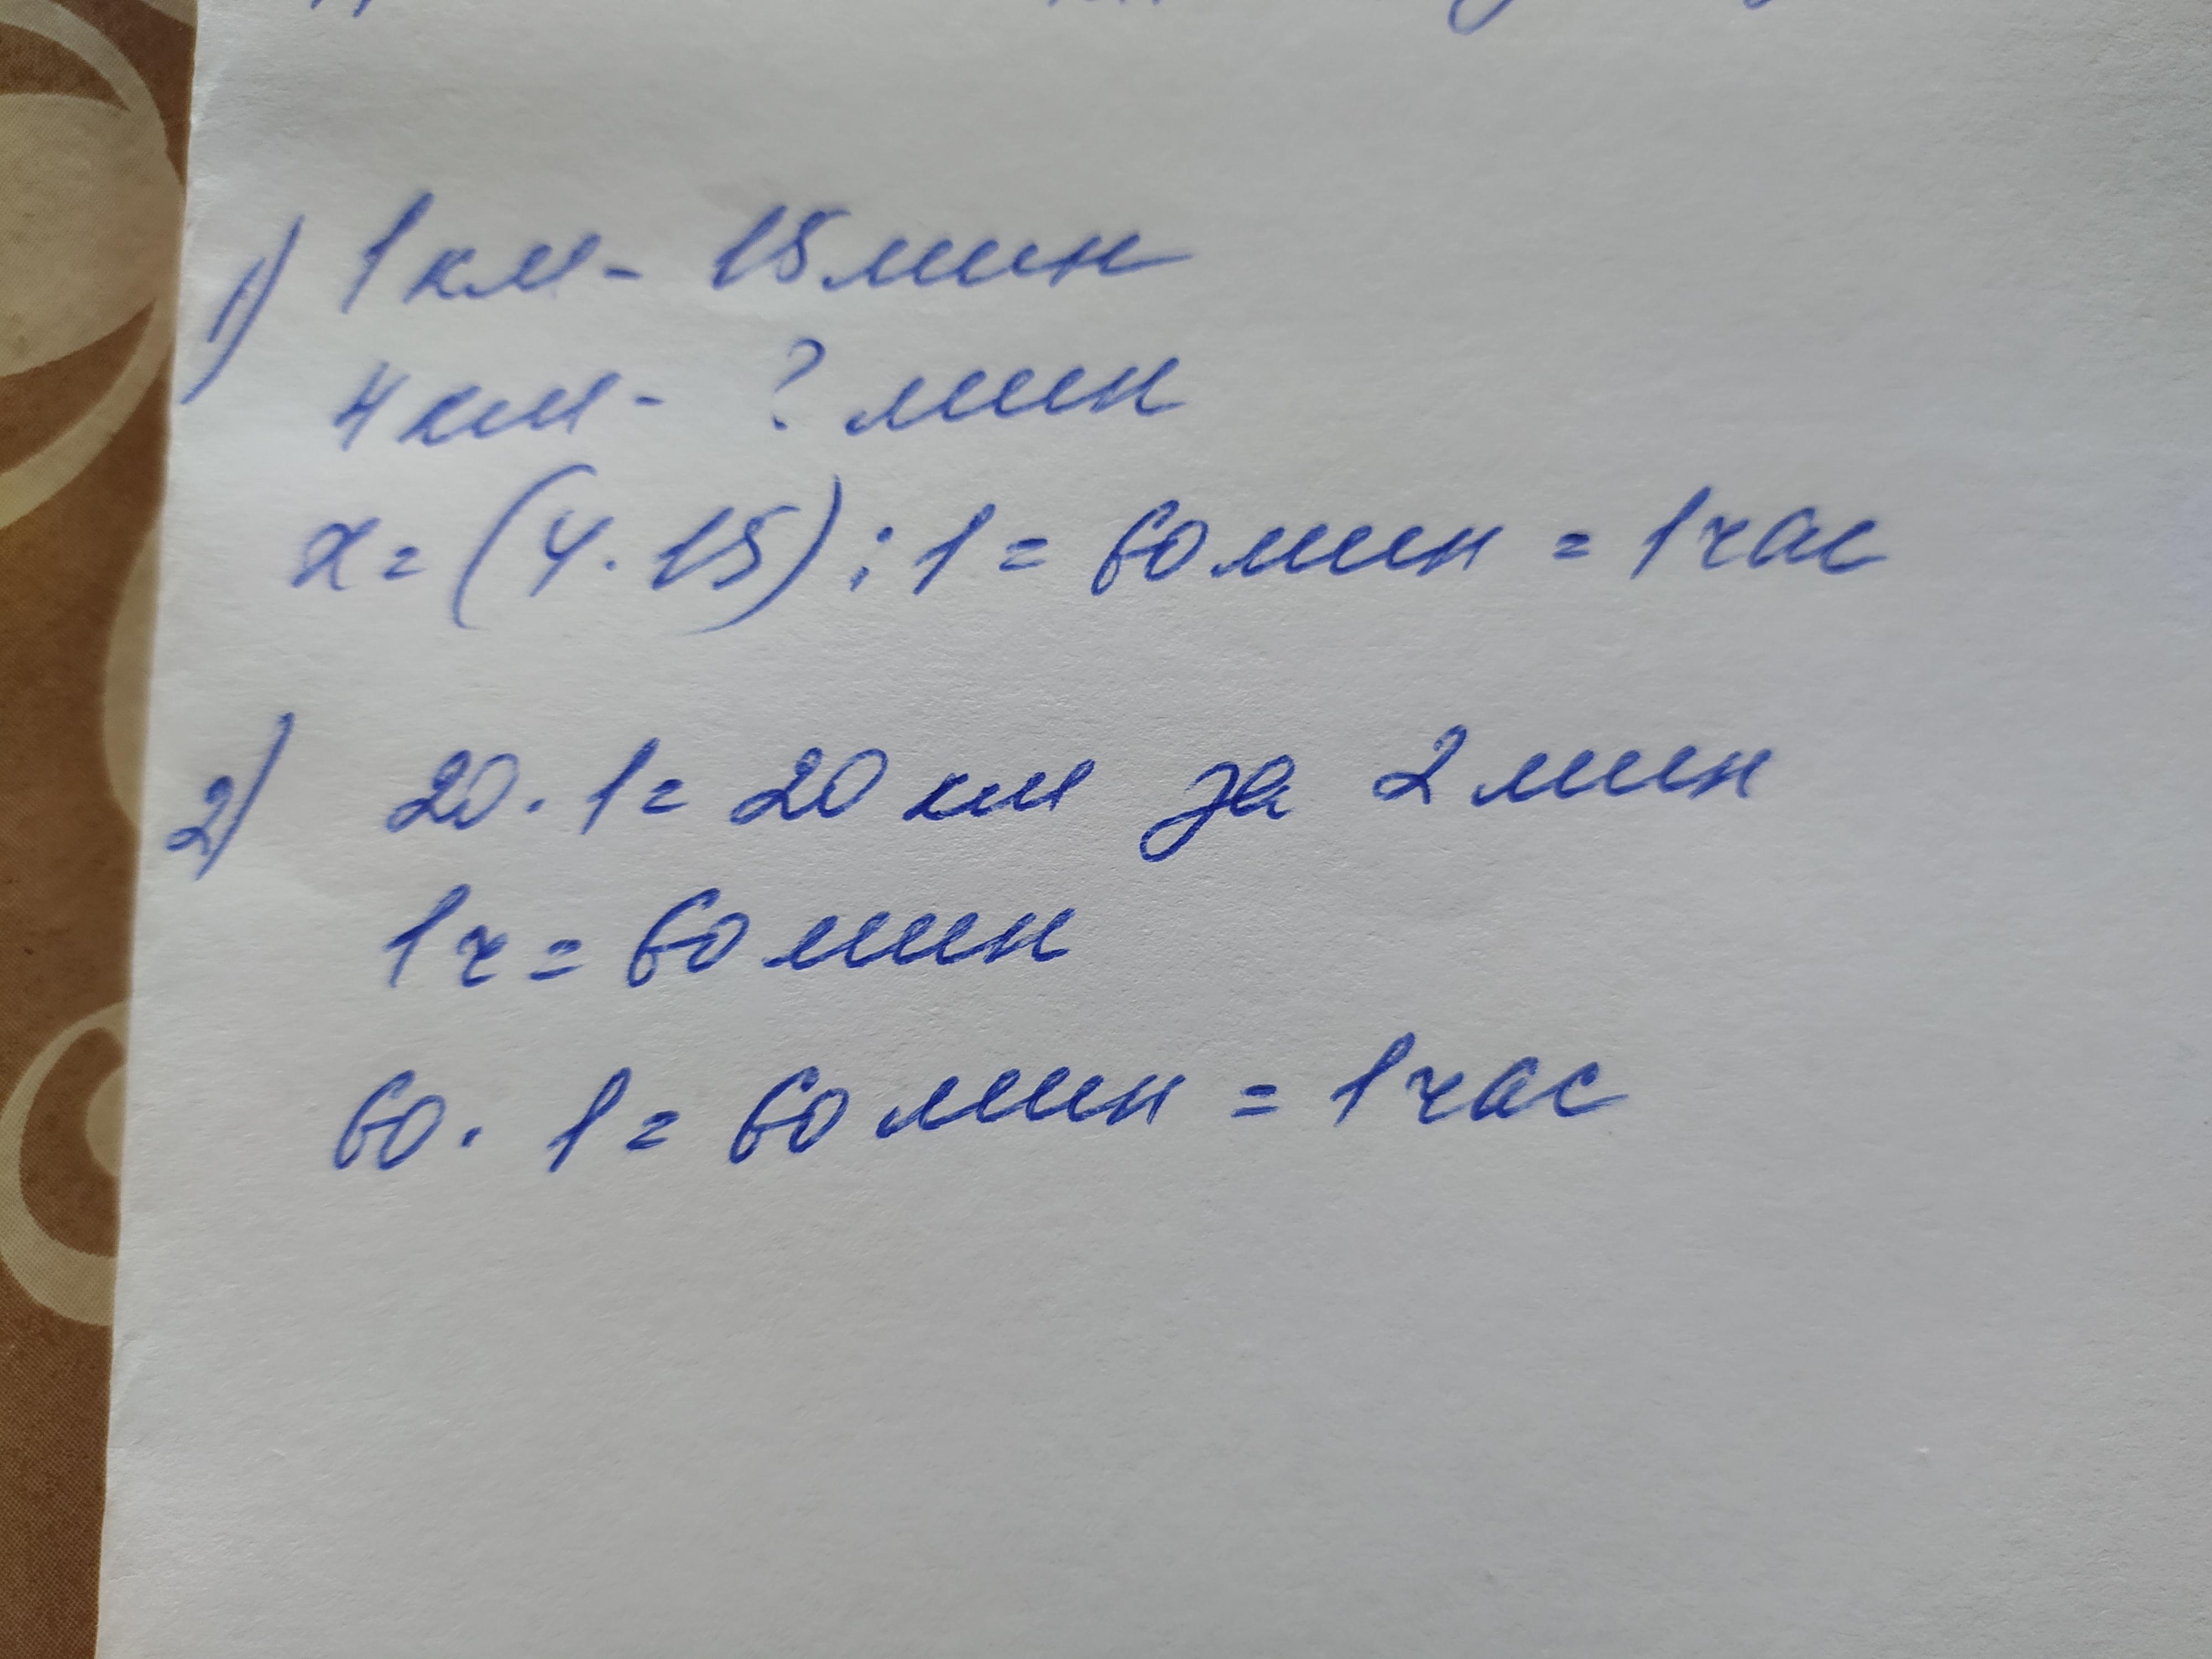 1) 1 км - 15 мин
4 км - ? мин
x = (4 · 15) : 1 = 60 мин = 1 час
2) 20 · 1 = 20 км за 2 мин
1 ч = 60 мин
60 · 1 = 60 мин = 1 час